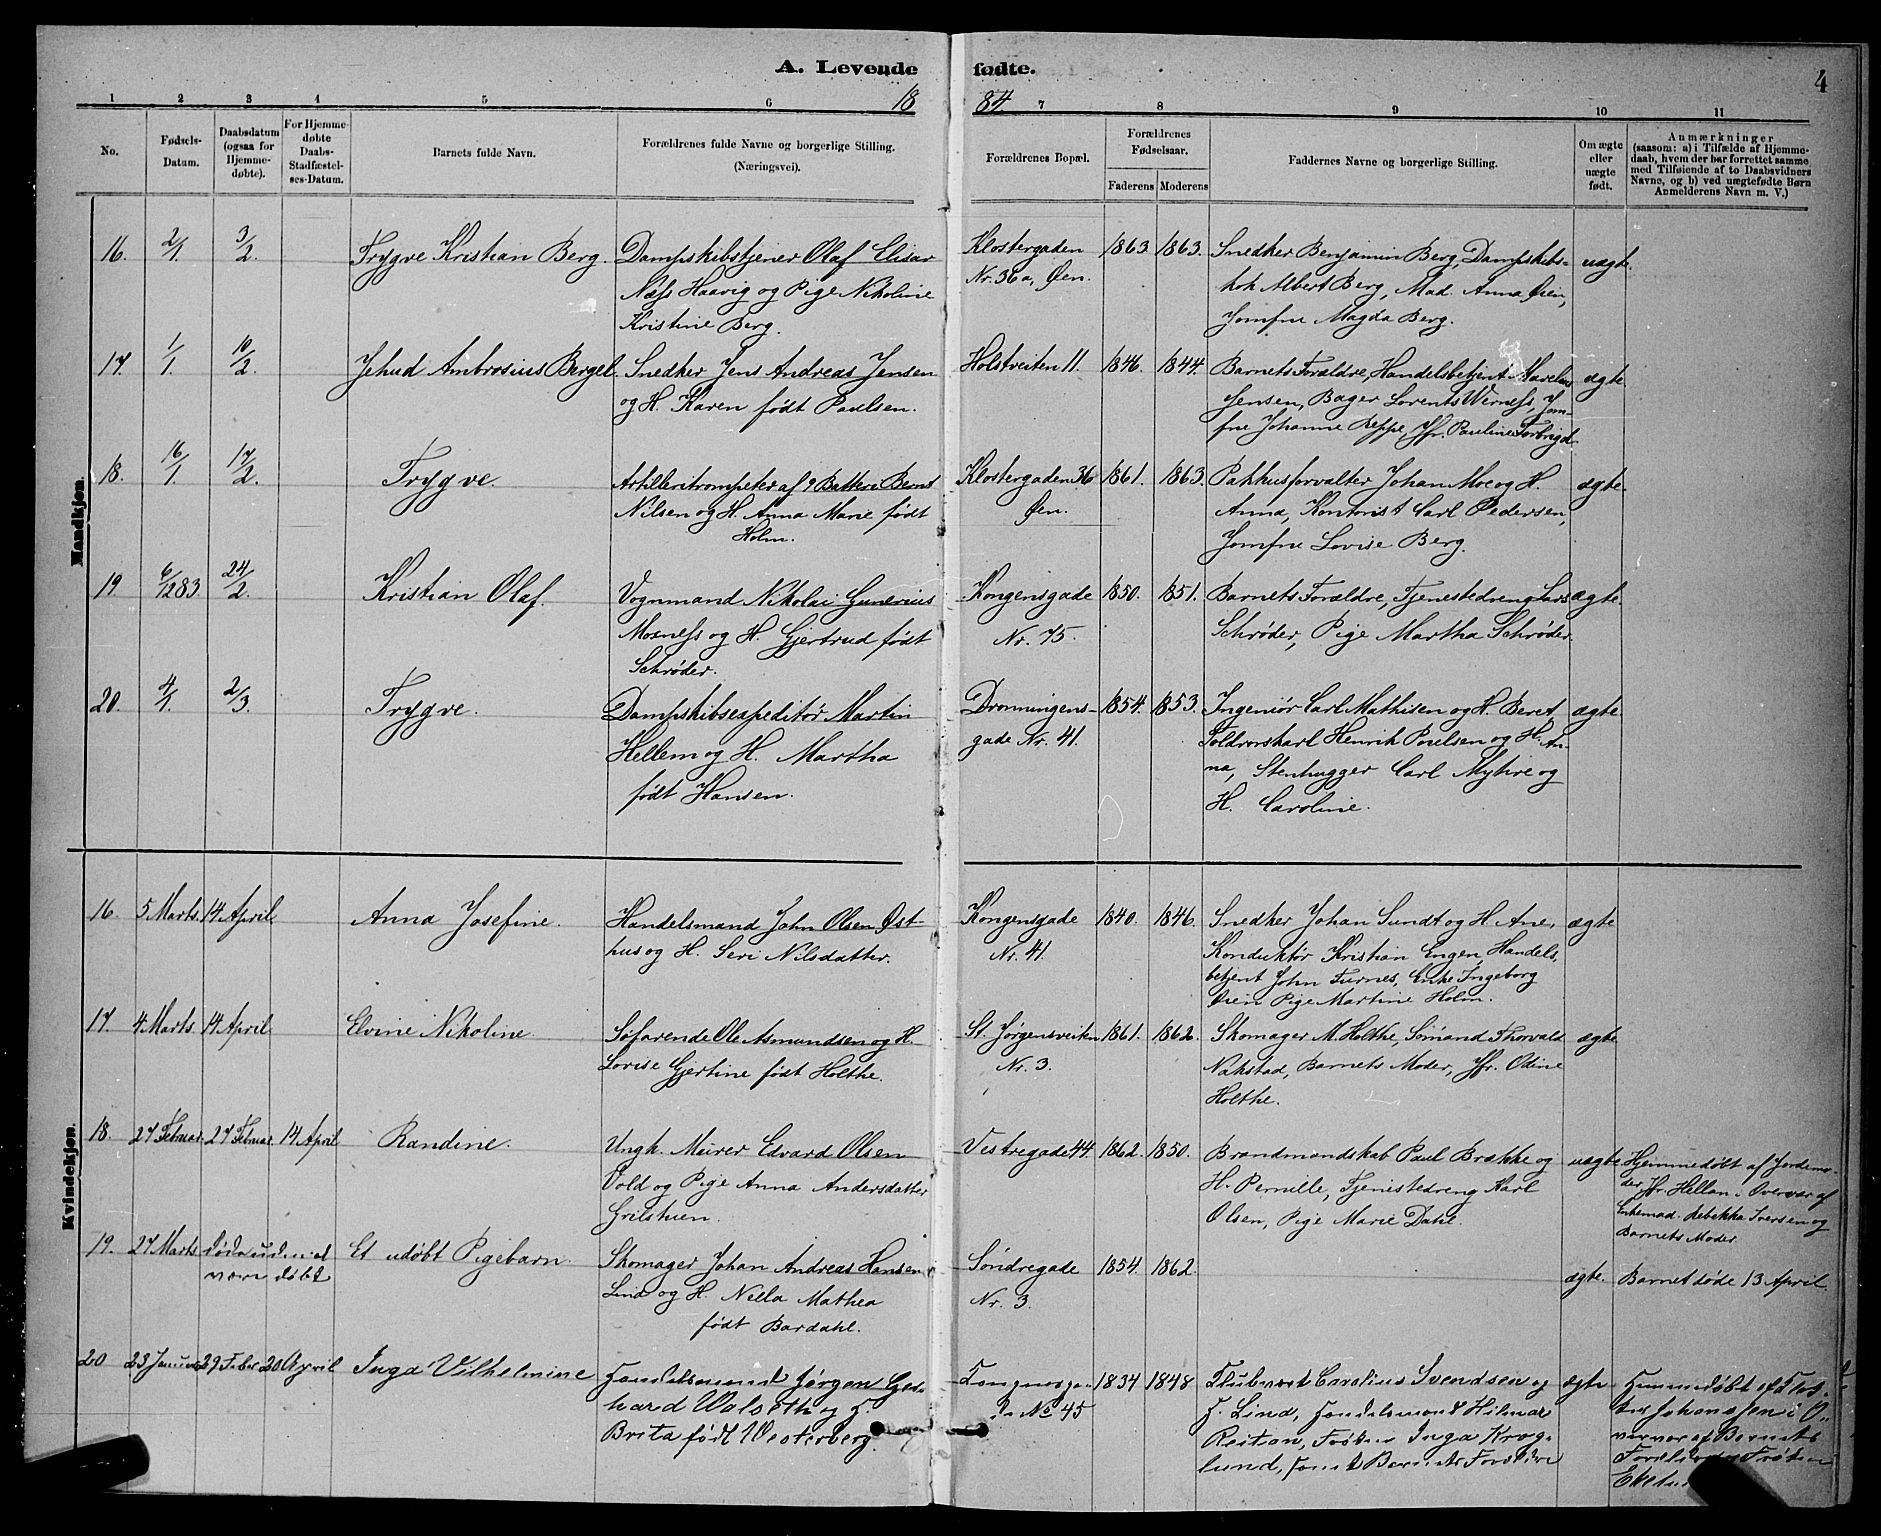 A. Levende fødte.
4
1 2 3 4 5 6 18 84. 7 8 9 10 11
No.
Fødsels-Datum.
Daabsdatum (ogsaa for Hjemme-døbte).
For Hjemme-døbte Daabs-Stadfæstel-ses-Datum.
Barnets fulde Navn.
Forældrenes fulde Navne og borgerlige Stilling. (Næringsvei).
Forældrenes Bopæl.
Forældrenes Fødselsaar.
Faderens Moderens
Faddernes Navne og borgerlige Stilling.
Om ægte eller uægte født.
Anmærkninger
(saasom: a) i Tilfælde af Hjemme-
daab, hvem der har forrettet samme
med Tilføiende af to Daabsvidners
Navne, og b) ved uægtefødte Børn
Anmelderens Navn m. V.)
Mandkjøn.
16. 2/1 3/2. Trygve Kristian Berg. Dampskibstjener Olaf Elisar
Næss Haavig og Pige Nikoline
Kristine Berg.
Klostergaden
Nr. 36a, Øen.
1863 1863. Snedker Benjamin Berg, Dampskibs-
kok Albert Berg, Mad. Anna Øien,
Jomfru Magda Berg.
uægte.
17. 1/1. 10/2. Jehud Ambrosius Bergel. Snedker Jens Andreas Jensen
og H. Karen født Paulsen.
Holstveiten 11. 1846. 1844. Barnets Forældre, Handelsbetjent
Jensen, Bager Lorents Werness, Jom-
fru Johanne Reppe, Jfr. Pauline
ægte.
18. 16/1 17/2. Trygve. Artilleritrompeter af 9 Batteri Bernt
Nilsen og H. Anna Marie født
Holm.
Klostergaden 36
Øen.
1861. 1863. Pakhusforvalter Johan Moe og H.
Anna, Kontorist Carl Pedersen,
Jomfru Lovise Berg.
ægte.
19 6/12 83 24/2. Kristian Olaf. Vognmand Nikolai Gunerius
Mosness og H. Gjertrud født
Schrøder.
Kongensgade
Nr. 75.
1850. 1851. Barnets Forældre, Tjenestedreng Lars
Schrøder, Pige Martha Schrøder.
ægte.
20. 4/1. 2/3. Trygve. Dampskibsexpeditør Martin
Hellem og H. Martha
født Hansen.
Dronningens-
gade Nr. 41.
1854. 1853. Ingeniør Carl Mathisen og H. Beret,
Toldrorskarl Henrik Poulsen og H. An-
na, Stenhugger Carl Myhre og
H. Caroline.
ægte.
Kvindekjøn.
16. 5 Marts. 14 April. Anna Josefine. Handelsmand John Olsen Øst-
hus og H. Seri Nilsdatter.
Kongensgade
Nr. 41.
1840. 1846. Snedker Johan Sundt og H. Ane,
Konduktør Kristian Engen, Handels,
betjent John Furnes, Enke Ingeborg
Øien Pige Martine Holm.
ægte
17. 4 Marts. 14 April Elvine Nikoline. Søfarende Ole Asmundsen og H.
Lovise Gjertine født Holthe.
St. Jørgensveiten
Nr. 3.
1861. 1862. Skomager M. Holthe, Sømand Thorvald
Nakstad, Barnets Moder, Jfr. Odine
Holthe.
ægte
18. 27 Februar. 27 Februar 14 April Randine. Ungk. Murer Edvard Olsen
Vold og Pige Anna Andersdatter
Grilstuen.
Vestregade 44. 1862. 1850. Brandmandskab Paul Brække og
H. Pernille, Tjenestedreng Karl
Olsen, Pige Marie Dahl.
uægte Hjemmedøbt af Jordemo-
der Jfr. Hellan i Overvær af
Enkemad. Rebekka Iversen og
Barnets Moder.
19. 27 Marts. døde uden at
være døbt
Et udøbt Pigebarn. Skomager Johan Andreas Hansen
Lind og H. Nella Mathea
født Bardahl.
Søndregade
Nr. 3.
1854. 1862. ægte. Barnet døde 13 April.
20 23 Januar 29 Febr 20 April Inga Vilhelmine Handelsmand Jørgen Ger-
hard Walseth og H.
Brita født Westerberg.
No 45
1834 1848 Carolius Svendsen og
H. Lina, Handelsmand Hilmar
Reitan, Frøken Inga Krog-
lund, samt Barnets Forældre
ægte Hjemmedøbt af
Johanssen i O-
vervær af Barnets
Forældre og Frøken